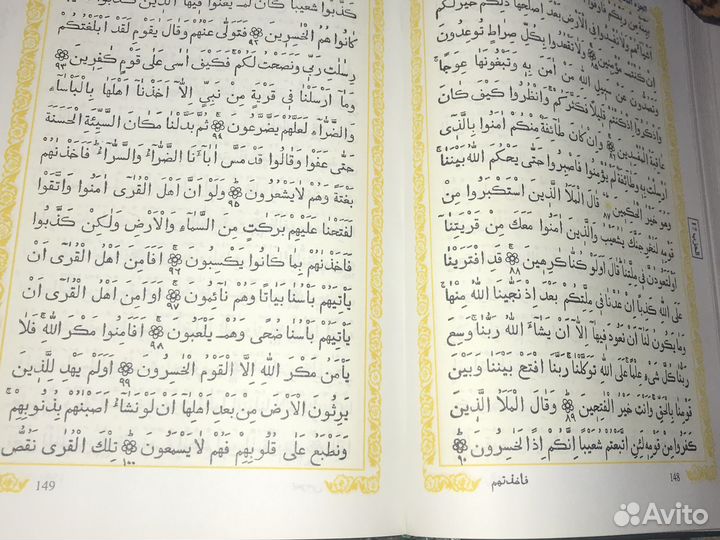 بَيِّنَةٌ مِنْ رَبِّكُمْ
وَلَا تُفْسِدُوا فِي الْاَرْضِ بَعْدَ اِصْلَاحِهَا ذٰلِكُمْ خَيْرٌ لَكُمْ
اِنْ كُنْتُمْ مُؤْمِنِينَ وَلَا تَقْعُدُوا بِكُلِّ صِرَاطٍ تُوعِدُونَ
وَتَصُدُّونَ عَنْ سَبِيلِ اللّٰهِ مَنْ اٰمَنَ بِهِ وَتَبْغُونَهَا عِوَجًا
وَاذْكُرُوا اِذْ كُنْتُمْ قَلِيلًا فَكَثَّرَكُمْ وَانْظُرُوا كَيْفَ كَانَ
عَاقِبَةُ الْمُفْسِدِينَ ٨٦ وَاِنْ كَانَ طَٓائِفَةٌ مِنْكُمْ اٰمَنُوا بِالَّذِٓي
اُرْسِلْتُ بِهِ وَطَٓائِفَةٌ لَمْ يُؤْمِنُوا فَاصْبِرُوا حَتّٰى يَحْكُمَ اللّٰهُ بَيْنَنَا
وَهُوَ خَيْرُ الْحٰكِمِينَ ٨٧ قَالَ الْمَلَاُ الَّذِينَ اسْتَكْبَرُوا مِنْ
قَوْمِهِ لَنُخْرِجَنَّكَ يٰشُعَيْبُ وَالَّذِينَ اٰمَنُوا مَعَكَ مِنْ قَرْيَتِنَٓا
اَوْ لَتَعُودُنَّ فِي مِلَّتِنَا قَالَ اَوَلَوْ كُنَّا كَارِهِينَ ٨٨ قَدِ افْتَرَيْنَا
عَلَى اللّٰهِ كَذِبًا اِنْ عُدْنَا فِي مِلَّتِكُمْ بَعْدَ اِذْ نَجّٰينَا اللّٰهُ مِنْهَا
وَمَا يَكُونُ لَنَٓا اَنْ نَعُودَ فِيهَٓا اِلَّٓا اَنْ يَشَٓاءَ اللّٰهُ رَبُّنَا وَسِعَ
رَبُّنَا كُلَّ شَيْءٍ عِلْمًا عَلَى اللّٰهِ تَوَكَّلْنَا رَبَّنَا افْتَحْ بَيْنَنَا وَبَيْنَ
قَوْمِنَا بِالْحَقِّ وَاَنْتَ خَيْرُ الْفٰتِحِينَ ٨٩ وَقَالَ الْمَلَاُ الَّذِينَ
كَفَرُوا مِنْ قَوْمِهِ لَئِنِ اتَّبَعْتُمْ شُعَيْبًا اِنَّكُمْ اِذًا لَخٰسِرُونَ ٩٠
148
فاخذتهم
كَذَّبُوا شُعَيْبًا كَانَ لَمْ يَغْنَوْا فِيهَا الَّذِينَ
كَانُوا هُمُ الْخٰسِرِينَ ٩٢ فَتَوَلّٰى عَنْهُمْ وَقَالَ يٰقَوْمِ لَقَدْ اَبْلَغْتُكُمْ
رِسٰلٰتِ رَبِّي وَنَصَحْتُ لَكُمْ فَكَيْفَ اٰسٰى عَلٰى قَوْمٍ كٰفِرِينَ ٩٣
وَمَٓا اَرْسَلْنَا فِي قَرْيَةٍ مِنْ نَبِيٍّ اِلَّٓا اَخَذْنَٓا اَهْلَهَا بِالْبَاْسَٓاءِ
وَالضَّرَّٓاءِ لَعَلَّهُمْ يَضَّرَّعُونَ ٩٤ ثُمَّ بَدَّلْنَا مَكَانَ السَّيِّئَةِ الْحَسَنَةَ
حَتّٰى عَفَوْا وَقَالُوا قَدْ مَسَّ اٰبَٓاءَنَا الضَّرَّٓاءُ وَالسَّرَّٓاءُ فَاَخَذْنٰهُمْ
بَغْتَةً وَهُمْ لَا يَشْعُرُونَ ٩٥ وَلَوْ اَنَّ اَهْلَ الْقُرٰٓى اٰمَنُوا وَاتَّقَوْا
لَفَتَحْنَا عَلَيْهِمْ بَرَكٰتٍ مِنَ السَّمَٓاءِ وَالْاَرْضِ وَلٰكِنْ كَذَّبُوا
فَاَخَذْنٰهُمْ بِمَا كَانُوا يَكْسِبُونَ ٩٦ اَفَاَمِنَ اَهْلُ الْقُرٰٓى اَنْ
يَاْتِيَهُمْ بَاْسُنَا بَيَاتًا وَهُمْ نَٓائِمُونَ ٩٧ اَوَاَمِنَ اَهْلُ الْقُرٰٓى اَنْ
يَاْتِيَهُمْ بَاْسُنَا ضُحًى وَهُمْ يَلْعَبُونَ ٩٨ اَفَاَمِنُوا مَكْرَ اللّٰهِ فَلَا
يَاْمَنُ مَكْرَ اللّٰهِ اِلَّا الْقَوْمُ الْخٰسِرُونَ ٩٩ اَوَلَمْ يَهْدِ لِلَّذِينَ
يَرِثُونَ الْاَرْضَ مِنْ بَعْدِ اَهْلِهَٓا اَنْ لَوْ نَشَٓاءُ اَصَبْنٰهُمْ بِذُنُوبِهِمْ
وَنَطْبَعُ عَلٰى قُلُوبِهِمْ فَهُمْ لَا يَسْمَعُونَ ١٠٠ تِلْكَ الْقُرٰى نَقُصُّ
149
Avito